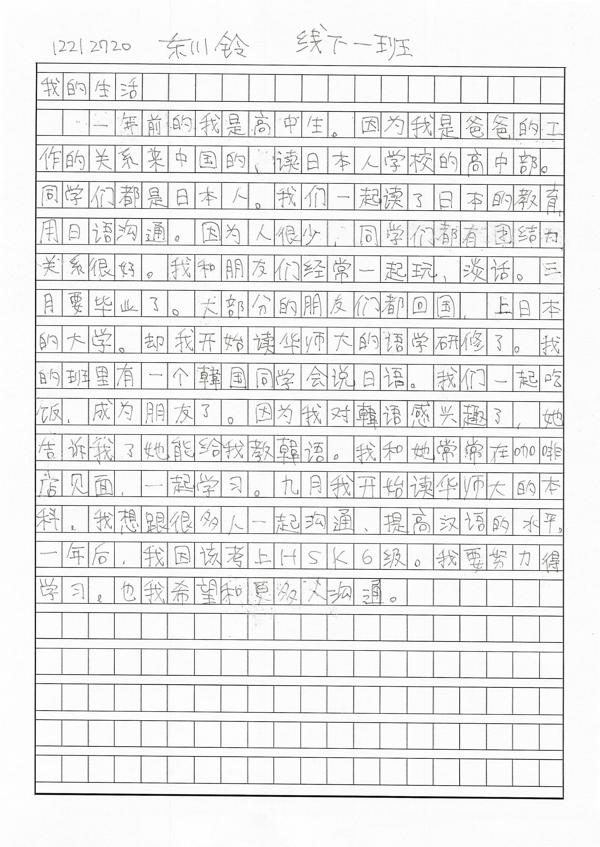 12212720 东川铃 线下一班
我的生活
一年前的我是高中生。因为我是爸爸的工
作的关系来中国的，读日本人学校的高中部。
同学们都是日本人。我们一起读了日本的教育，
用日语沟通。因为人很少，同学们都有团结力，
关系很好。我和朋友们经常一起玩、淡话。三
月要毕业了。大部分的朋友们都回国，上日本
的大学。却我开始读华师大的语学研修了。我
的班里有一个韓国同学会说日语。我们一起吃
饭，成为朋友了。因为我对韓语感兴趣了，她
告诉我了她能给我教韓语。我和她常常在咖啡
店见面，一起学习。九月我开始读华师大的本
科。我想跟很多人一起沟通、提高汉语的水平。
一年后，我因该考上HSK6级。我要努力得
学习。也我希望和更多人沟通。